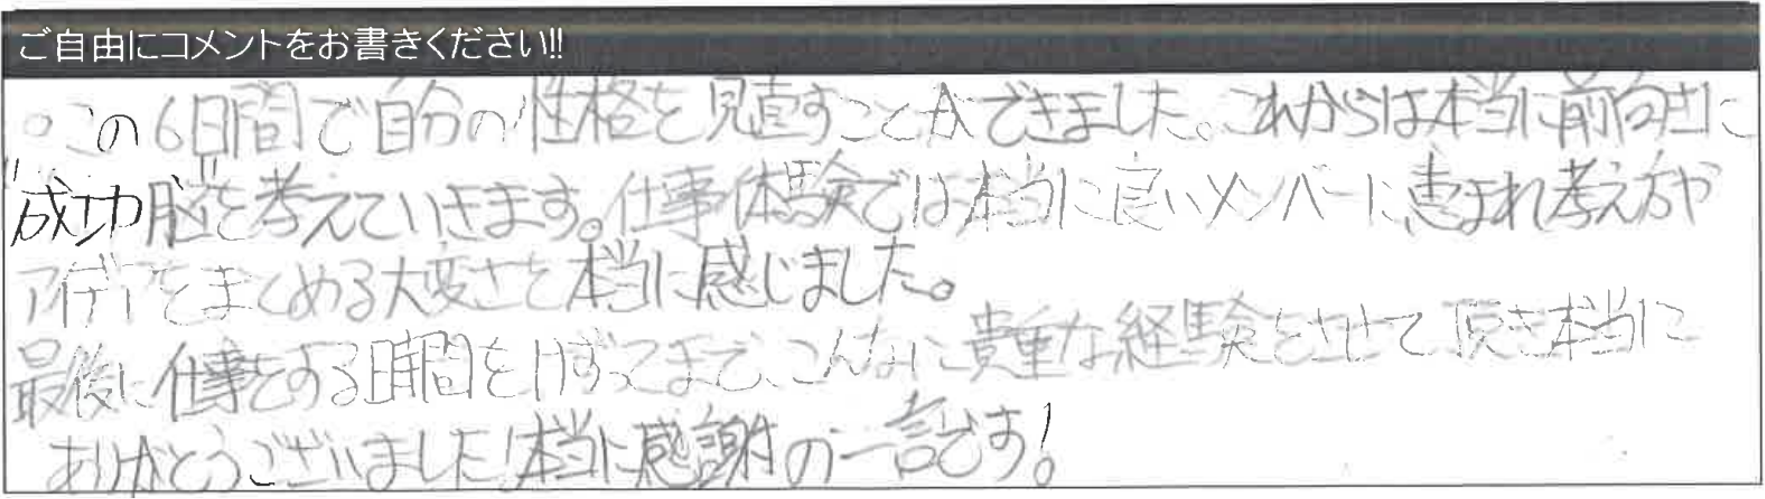 ご自由にコメントをお書きください!!
○この6日間で自分の性格を見直すことができました。これからは本当に前向きに
"成功脳"を考えていきます。仕事体験では本当に良いメンバーに恵まれ考え方や
アイデアをまとめる大変さを本当に感じました。
最後に仕事をする時間をけずってまで、こんなに貴重な経験をさせて頂き本当に
ありがとうございました!本当に感謝の一言です!